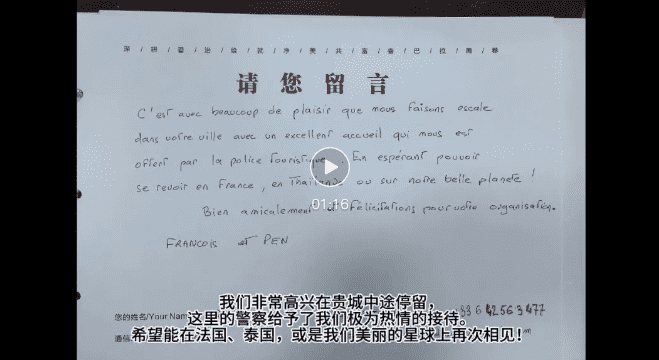 请您留言
C'est avec beaucoup de plaisir que nous faisons escale
dans votre ville avec un excellent accueil qui nous est
offert par la police touristique. En espérant pouvoir
se revoir en France, en Thaïlande ou sur notre belle planète !
01:16
Bien amicalement et félicitations pour votre organisation.
FRANCOIS et PEN
我们非常高兴在贵城中途停留，
您的姓名/Your Nam
这里的警察给予了我们极为热情的接待。
希望能在法国、泰国，或是我们美丽的星球上再次相见！